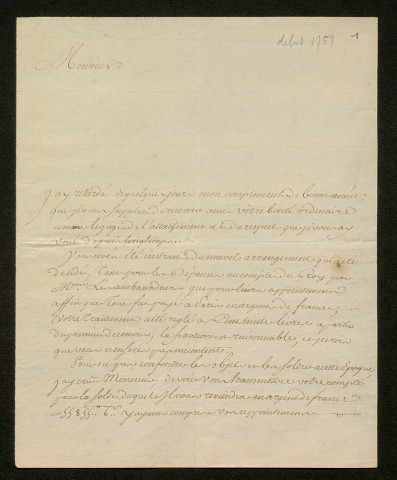 debut 1759 1
Monsieur
J'ay retardé de quelques jours mon compliment de bonne année,
que je vous supplie de recevoir avec votre bonté ordinaire
comme le gage de l'attachement et du respect que je vous ay
voué depuis longtemps.
Vous avez été instruit du nouvel arrangement qui a été
décidé, tant pour les dépenses au compte du Roy par
Mrs Les ambassadeurs que pour leurs appointements
affin que tout fut payé à Paris en argent de france,
Votre Traitement a été reglé à mille Livres a partir
du premier de ce mois, la fixation est raisonnable, et j'espere
que vous n'en serez pas mecontent.
Pour ne pas confondre les objets et les solder à cette Epoque,
j'ay crû Monsieur devoir vous transmettre votre compte
pour la solde duquel il vous reviendra en argent de france
y compris vos appointemens